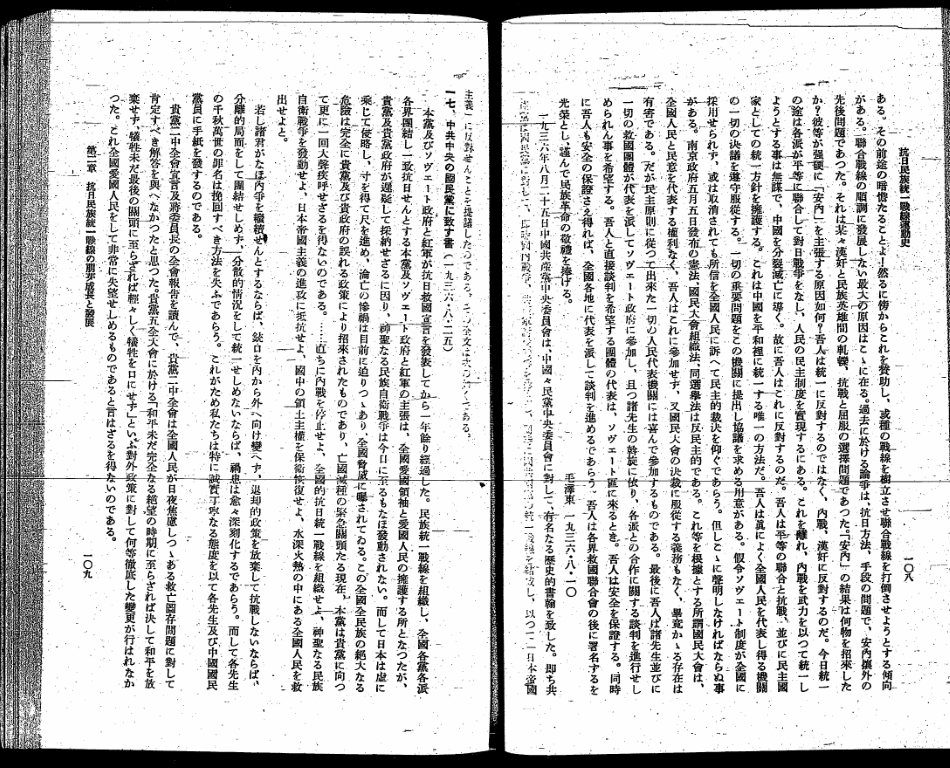 抗日民族統一戰線運動史
一〇八
ある。その前途の暗憺たることよ!然るに傍からこれを贊助し、或種の戰線を樹立させ聯合戰線を打倒させようとする傾向
がある。聯合戰線の順調に發展しない最大の原因はこゝに在る。過去に於ける論爭は、抗日方法、手段の問題で、安內攘外の
先後問題であつた。それは某々漢奸と民族英雄間の軋轢、抗戰と屈服の選擇問題であつた。「安內」の結果は何物を招來した
か?彼等が强硬に「安內」を主張する原因如何?吾人は統一に反對するのではなく、內戰、漢奸に反對するのだ。今日統一
の途は各派が平等に聯合して對日戰爭をなし、人民の民主制度を實現するにある。これを離れ、內戰を武力を以つて統一し
ようとする事は無謀で、中國を分裂滅亡に導く。故に吾人はこれに反對するのだ。吾人は平等の聯合と抗戰、並びに民主國
家としての統一方針を擁護する。これは中國を平和裡に統一する唯一の方法だ。吾人は眞によく全國人民を代表し得る機關
の一切の決議を遵守服從する。一切の重要問題をこの機關に提出し協議を求める用意がある。假令ソヴェート制度が全國に
採用せられず、或は取消されても所信を全國人民に訴へて民主的裁決を仰ぐであらう。但しこゝに聲明しなければならぬ事
がある。南京政府五月五日發布の憲法と國民大會組織法、同選擧法は反民主的である。これ等を根據とする所謂國民大會は、
全國人民と民意を代表する權利なく、吾人はこれに參加せず、又國民大會の決裁に服從する義務もなく、畢竟かゝる存在は
有害である。だが民主原則に從つて出來た一切の人民代表機關には喜んで參加するものである。最後に吾人は諸先生並びに
一切の救國團體が代表を派してソヴェート政府に參加し、且つ諸先生の斡旋に依り、各派との合作に關する談判を進行せし
められん事を希望する。吾人と直接談判を希望する團體の代表は、ソヴェート區に來るとき。吾人は安全を保證する。同時
に吾人も安全の保證さえ得れば、全國各地に代表を派して談判を進めるであらう。吾人は各界救國聯合會の後に署名するを
光榮とし、謹んで民族革命の敬禮を捧げる。
毛澤東 一九三六・八・一〇
一九三六年八月二十五日中國共產黨中央委員會は、中國々民黨中央委員會に對して、有名なる歷史的書翰を致した。卽ち共
し、以つて「日本帝國
主義」に反對せんことを提議したのである。その全文は次の如くである。
一七、中共中央の國民黨に致す書(一九三六・八・二五)
本黨及びソヴェート政府と紅軍が抗日救國宣言を發表してから一年餘り經過した。民族統一戰線を組織し、全國各黨各派
各界團結し一致抗日せんとする本黨及ソヴェート政府と紅軍の主張は、全國愛國領袖と愛國人民の擁護する所となつたが、
貴黨及貴黨政府が遲疑して採納せざるに因り、神聖なる民族自衞戰爭は今日に至るもなほ發動されない。而して日本は虛に
乘じて侵略し、寸を得て尺を進め、淪亡の慘禍は目前に迫りつゝあり、全國脅威に曝されてゐる。この全國全民族の絕大なる
危險は完全に貴黨及び貴政府の誤れる政策により招來されたものであり、亡國滅種の緊急關頭たる現在、本黨は貴黨に向つ
て更に一回大聲疾呼せざるを得ないのである。……直ちに內戰を停止せよ、全國的抗日統一戰線を組織せよ、神聖なる民族
自衞戰爭を發動せよ、日本帝國主義の進攻に抵抗せよ、國中の領土主權を保衞恢復せよ、水深火熱の中にある全國人民を救
出せよと。
若し諸君がなほ內爭を繼續せんとするならば、鋒口を內から外へ向け變へず、退却的政策を放棄して抗戰しないならば、
分離的局面をして團結せしめず、分散的情況をして統一せしめないならば、禍患は愈々深刻化するであらう。而して各先生
の千秋萬世の罪名は挽回すべき方法を失ふであらう。これがため私たちは特に誠實丁寧なる態度を以て各先生及び中國國民
黨員に手紙を發するのである。
貴黨二中全會宣言及蔣委員長の全會報告を讀んで、貴黨二中全會は全國人民が日夜焦慮しつゝある救亡圖存問題に對して
肯定すべき解答を與へなかつたと思つた。貴黨五全大會に於ける「和平未だ完全なる絕望の時期に至らざれば決して和平を放
棄せず、犧牲未だ最後の關頭に至らざれば輕々しく犧牲を口にせず」といふ對外政策に對して何等徹底した變更が行はれなか
つた。これ全國愛國人民をして非常に失望せしめるものであると言はざるを得ないのである。
第二章 抗日民族統一戰線の萠芽成長と發展
一〇九